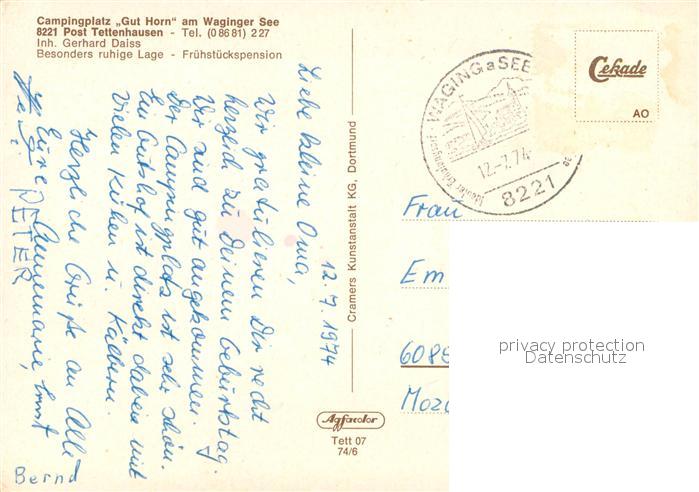 Campingplatz „Gut Horn“ am Waginger See
8221 Post Tettenhausen - Tel. (0 86 81) 2 27
Inh. Gerhard Daiss
Besonders ruhige Lage - Frühstückspension
12.7.1974
Liebe kleine Oma,
Wir gratulieren Dir recht
herzlich zu Deinem Geburtstag.
Wir sind gut angekommen.
Der Campingplatz ist sehr schön.
Ein Gutshof ist direkt dabei mit
vielen Kühen u. Kälbern.
Herzliche Grüße an Alle
Eure Annemarie, Ernst
PETER
Bernd
Cramers Kunstanstalt KG, Dortmund
Agfacolor
Tett 07
74/6
WAGING a SEE
12.-7.74
8221
Cekade
AO
Frau
Em
608
Moz
privacy protection
Datenschutz